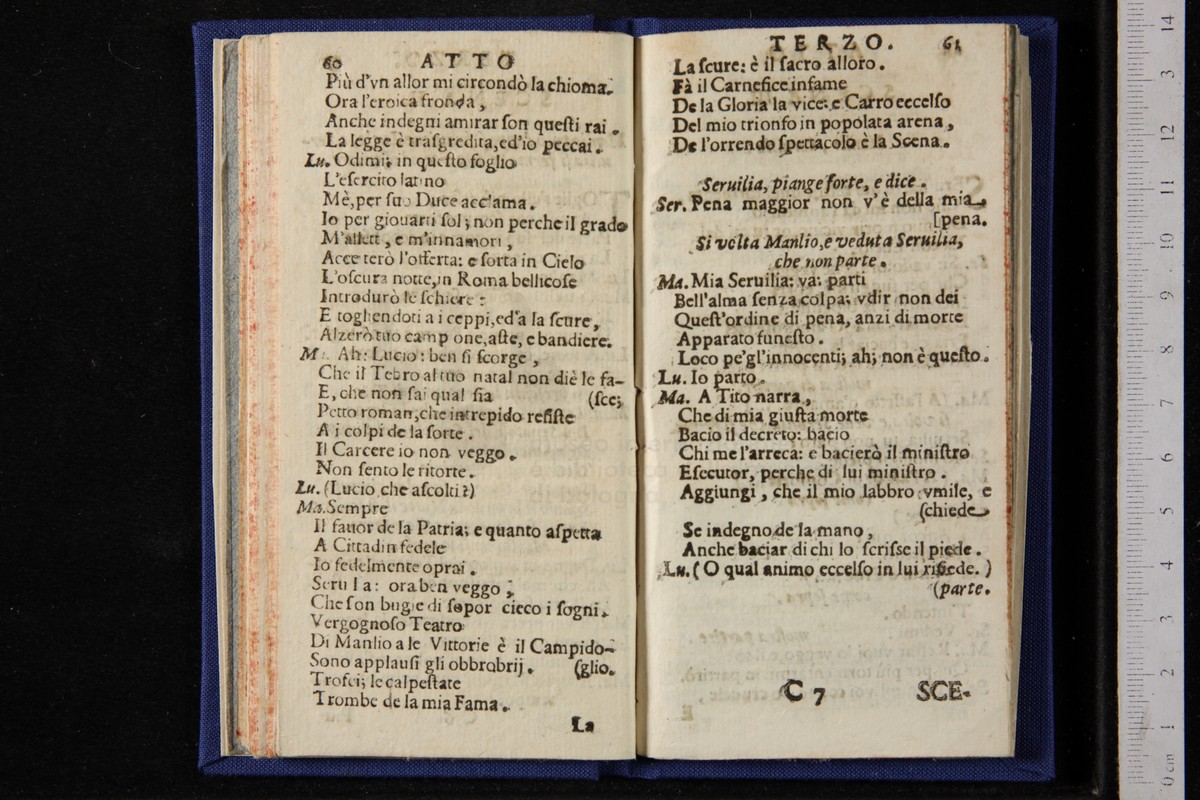 60 ATTO
Più d'vn allor mi circondò la chioma.
Ora l'eroica fronda,
Anche indegni amirar ſon queſti rai.
La legge è traſgredita, ed'io peccai.
Lu. Odimi; in queſto foglio
L'eſercito latino
Mè, per ſuo Duce acc'ama.
Io per giouarti ſol; non perche il grado
M'allett, e m'innamori,
Accetterò l'offerta: e ſorta in Cielo
L'oſcura notte, in Roma bellicoſe
Introdurò le ſchiere:
E togliendoti a i ceppi, ed'a la ſcure,
Alzerò tuo campione, aſte, e bandiere.
Ma. Ah: Lucio: ben ſi ſcorge,
Che il Tebro al tuo natal non diè le fa-
E, che non ſai qual ſia (ſce;
Petto roman, che intrepido reſiſte
A i colpi de la ſorte.
Il Carcere io non veggo.
Non ſento le ritorte.
Lu. (Lucio che aſcolti?)
Ma. Sempre
Il fauor de la Patria; e quanto aſpetta
A Cittadin fedele
Io fedelmente oprai.
Serui la: ora ben veggo;
Che ſon bugie di ſopor cieco i ſogni.
Vergognoſo Teatro
Di Manlio a le Vittorie è il Campido-
Sono applauſi gli obbrobrij. (glio.
Trofei; le calpeſtate
Trombe de la mia Fama.
La
TERZO. 61
La ſcure: è il ſacro alloro.
Fà il Carnefice infame
De la Gloria la vice: e Carro eccelſo
Del mio trionfo in popolata arena,
De l'orrendo ſpettacolo è la Scena.
Seruilia, piange forte, e dice.
Ser. Pena maggior non v'è della mia
[pena.
Si volta Manlio, e veduta Seruilia,
che non parte.
Ma. Mia Seruilia: va: parti
Bell'alma ſenza colpa; vdir non dei
Queſt'ordine di pena, anzi di morte
Apparato funeſto.
Loco pe'gl'innocenti; ah; non è queſto.
Lu. Io parto.
Ma. A Tito narra,
Che di mia giuſta morte
Bacio il decreto: bacio
Chi me l'arreca: e bacierò il miniſtro
Eſecutor, perche di lui miniſtro.
Aggiungi, che il mio labbro vmile, e
(chiede
Se indegno de la mano,
Anche baciar di chi lo ſcriſse il piede.
Lu. (O qual animo eccelſo in lui riſiede.)
(parte.
C 7 SCE-